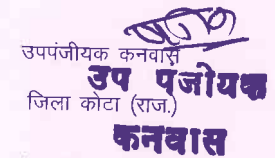 उपपंजीयक कनवास
उप पंजीयक
जिला कोटा (राज.)
कनवास